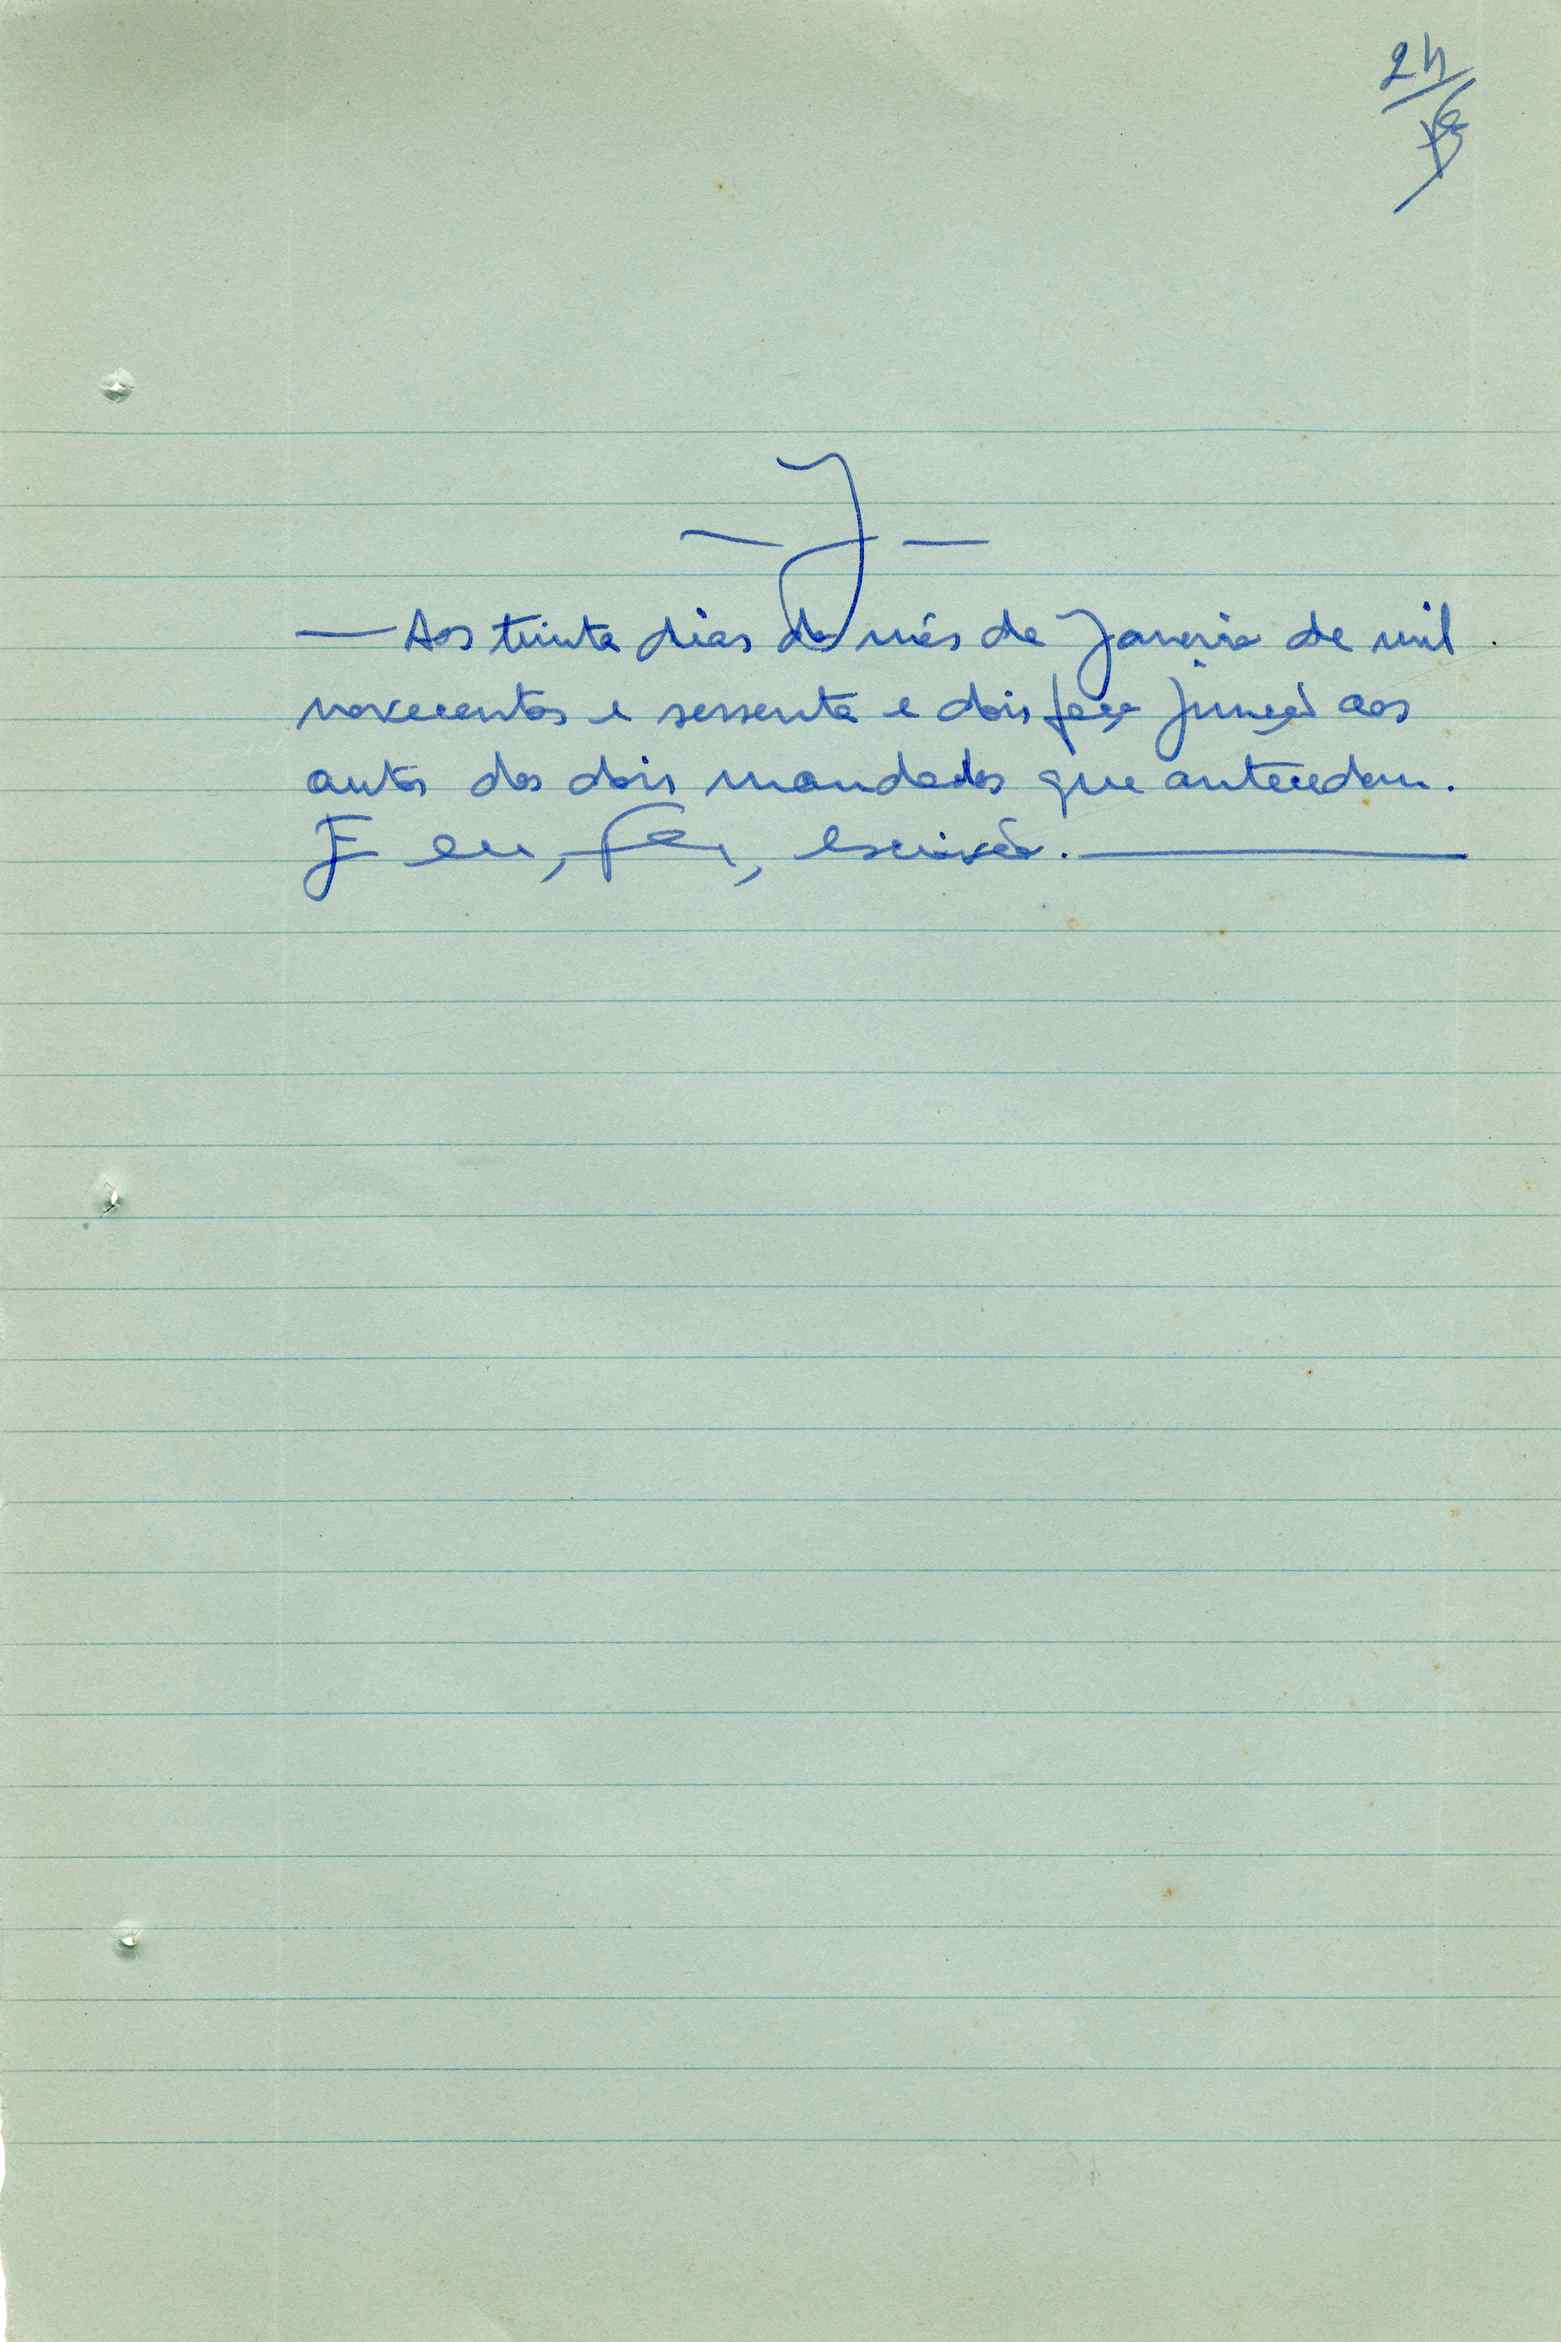 24
— J —
— Aos trinta dias do mês de Janeiro de mil
novecentos e sessenta e dois faço junção aos
autos dos dois mandados que antecedem.
E eu, , escrivão. —